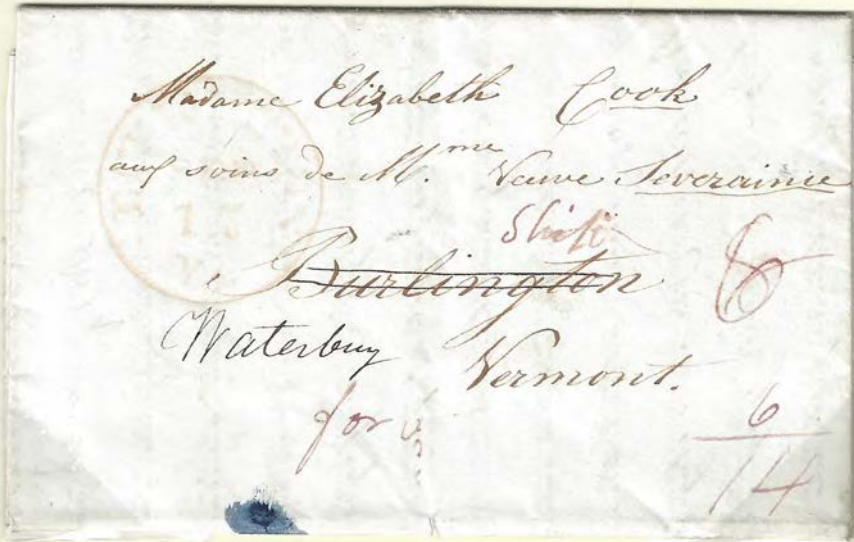 Madame Elizabeth Cook
aux soins de M.me Veuve Severaince
Ship
8
Burlington
Waterbury
Vermont.
for
6
14